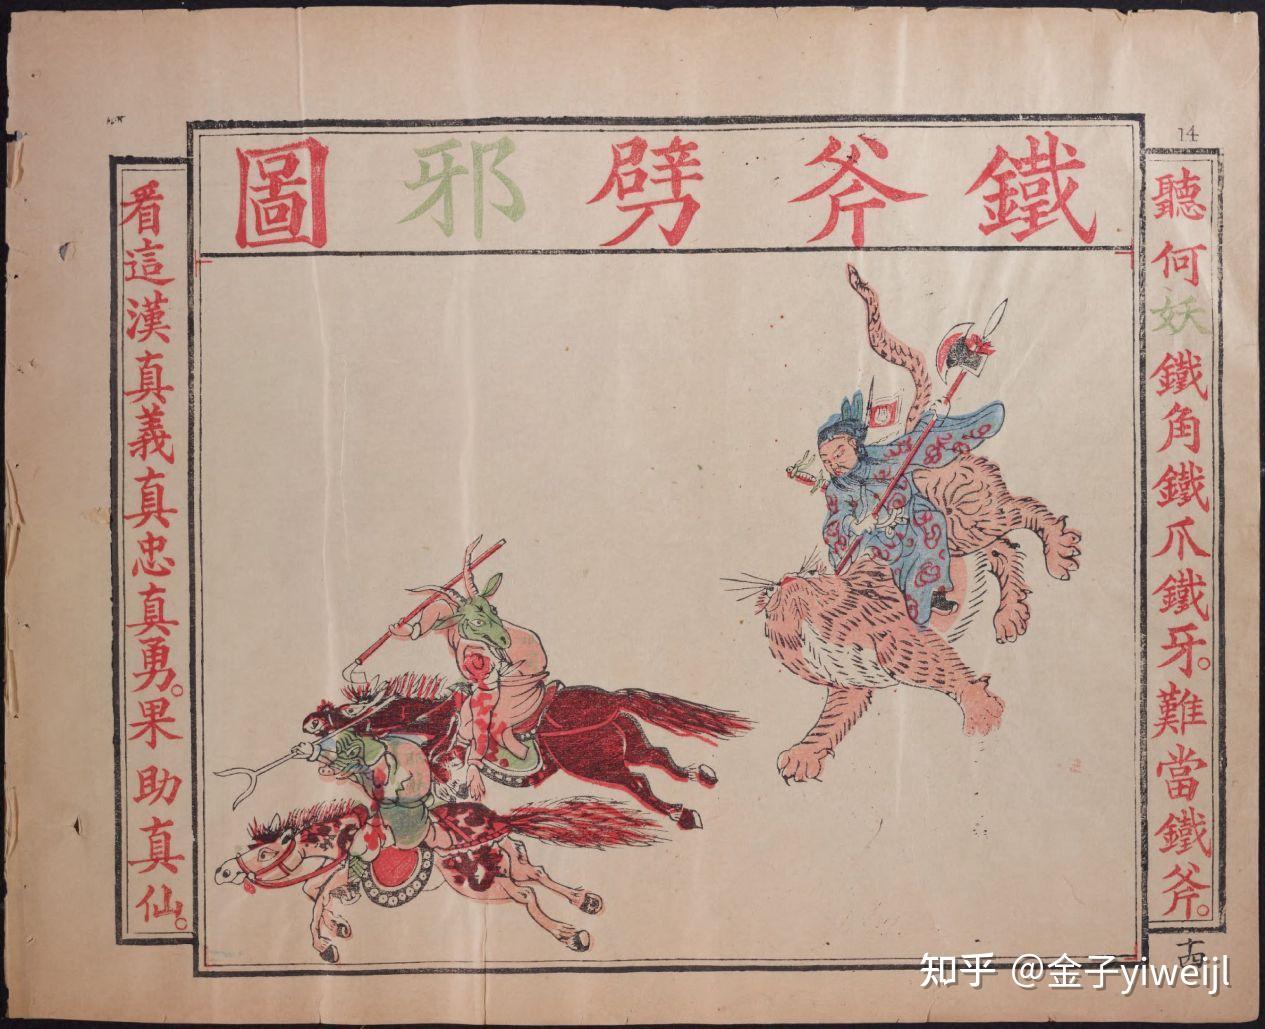 鐵斧劈邪圖
14
聽何妖鐵角鐵爪鐵牙。難當鐵斧。
看這漢真義真忠真勇。果助真仙。
十四
知乎 @金子yiweijl